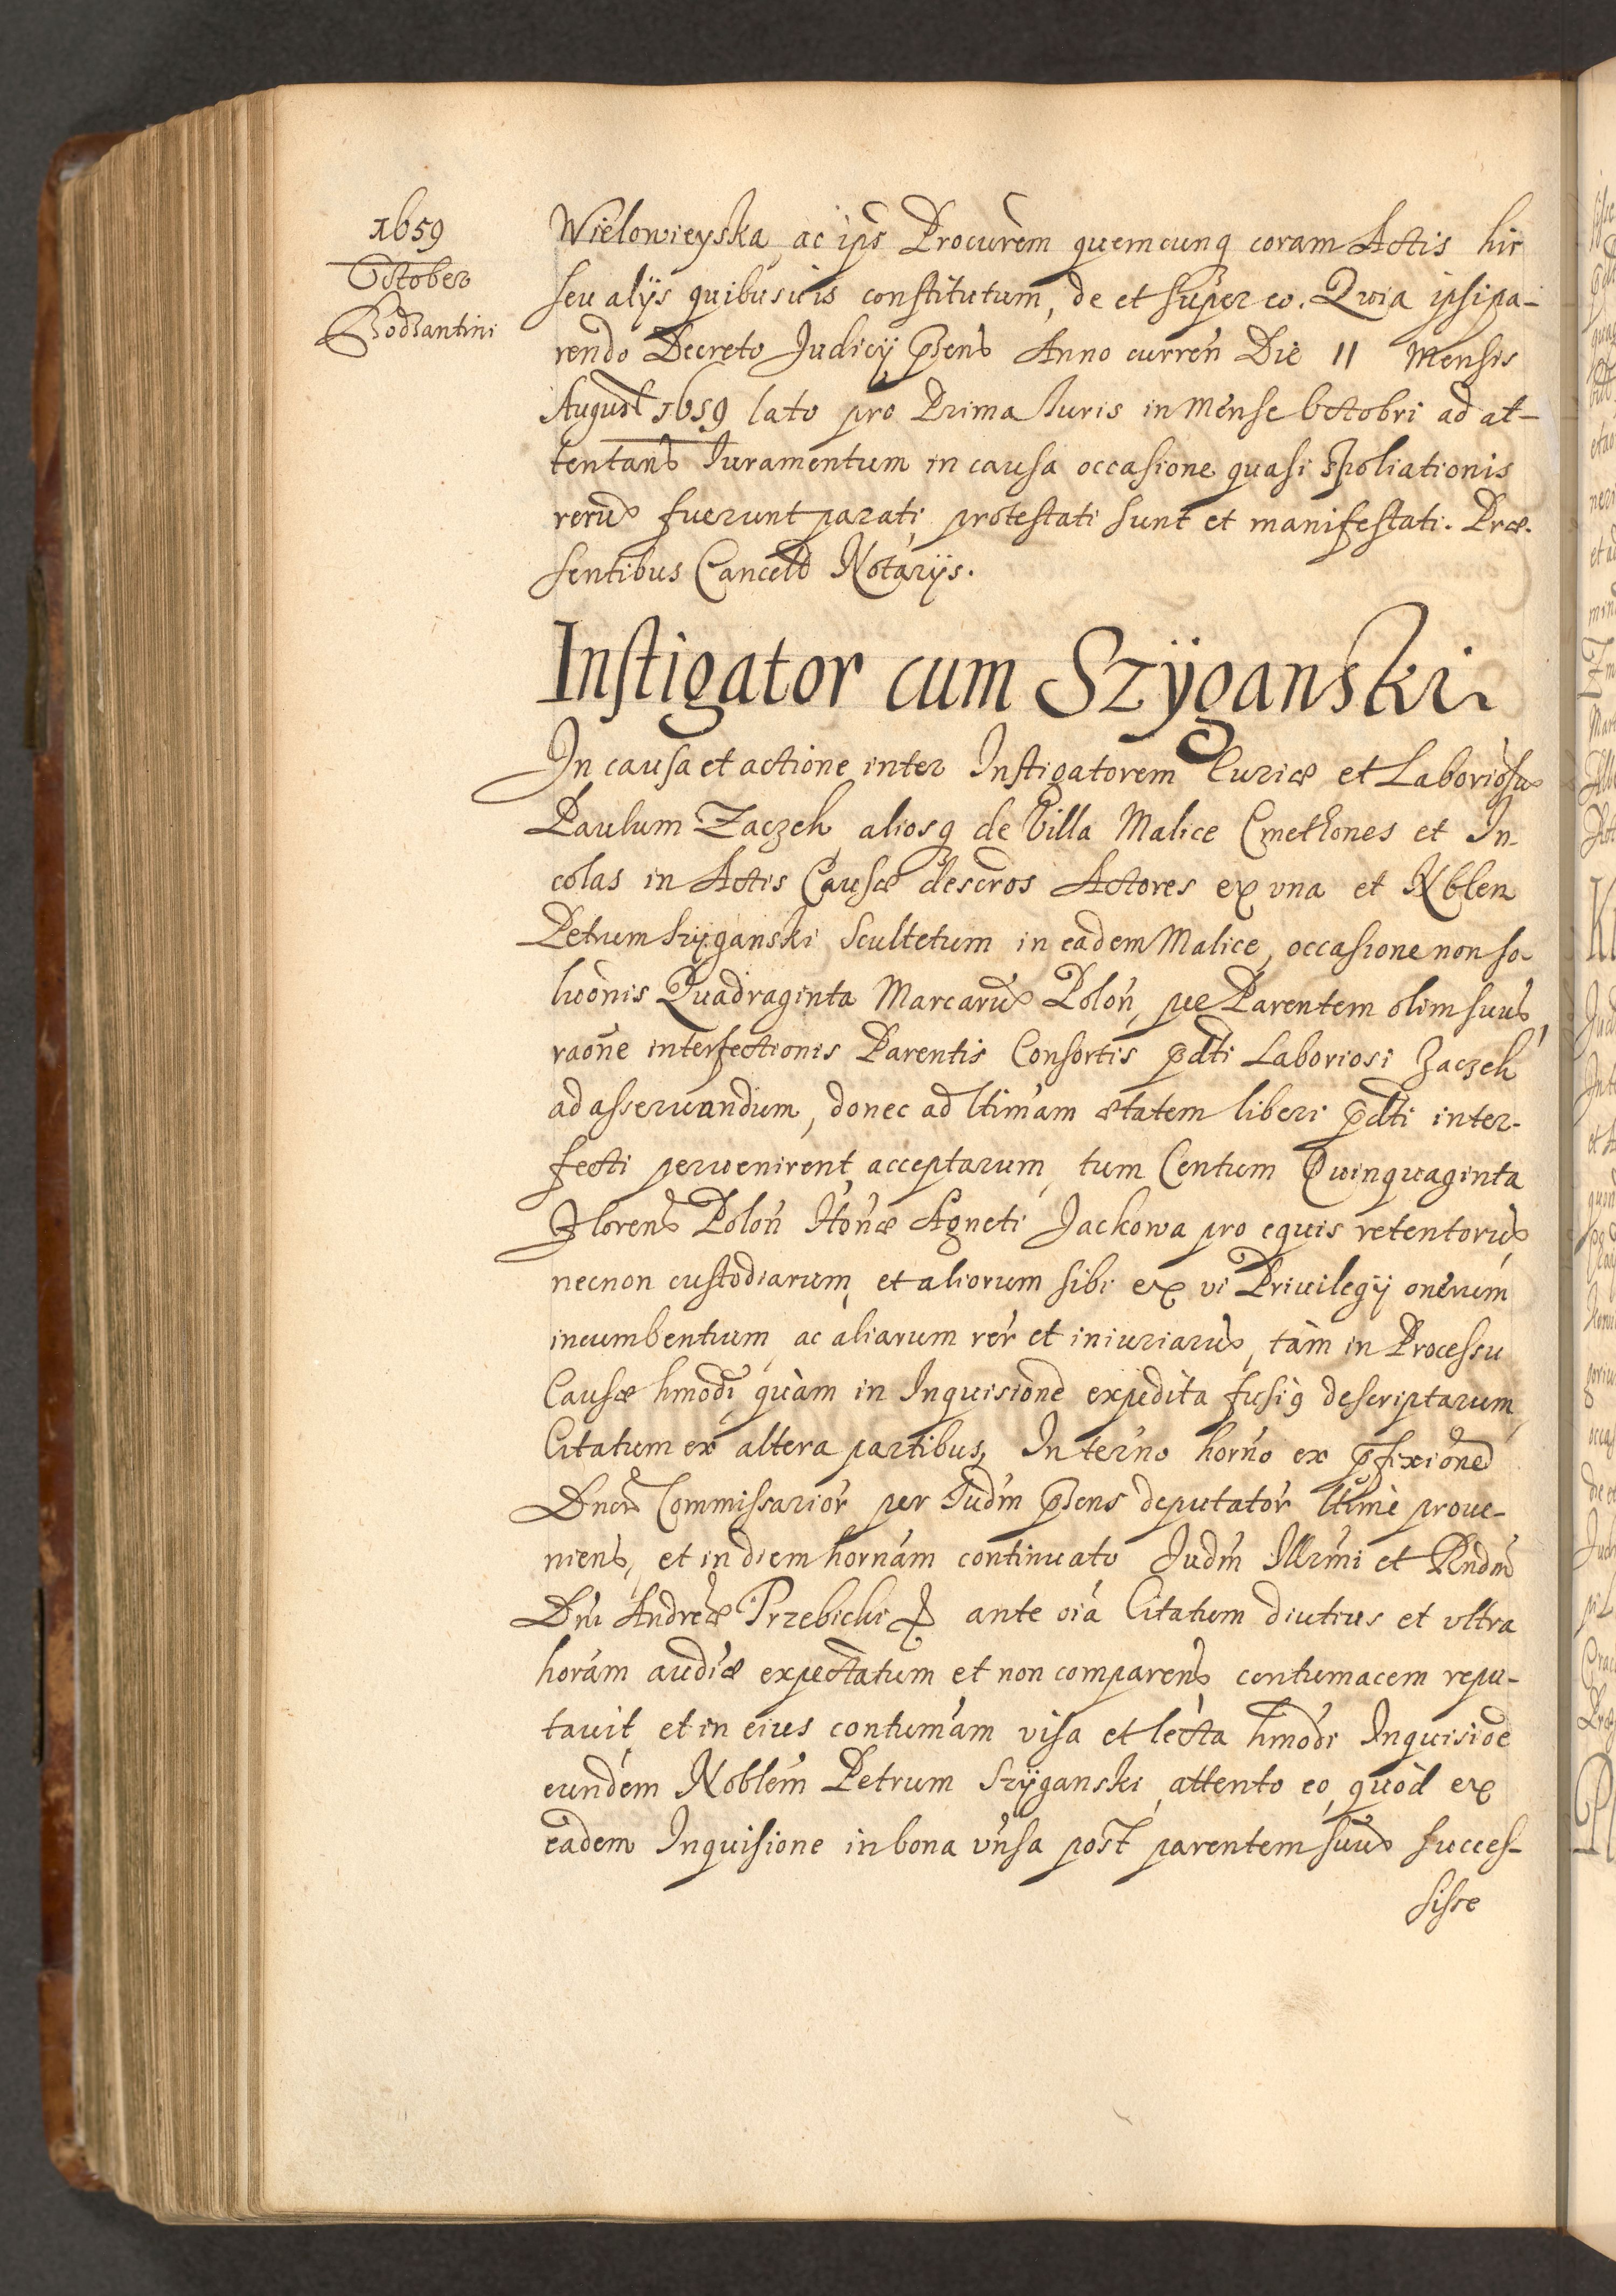 1659
October
Bodzantini
Wielowieyska, ac ips Procurem quemcunq coram Actis his
seu alijs quibusuis constitutum, de et super eo. Quia ipsi pa-
rendo Decreto Judicij pñsens Anno curreñ Die 11 Mensis
August 1659 lato pro Prima Iuris in Mense Octobri ad at-
tentans Iuramentum in causa occasione quasi spoliationis
rerum fuerunt parati, protestati sunt et manifestati. Præ-
sentibus Cancell Notarijs.
Instigator cum Szÿganski
In causa et actione inter Instigatorem Curiæ et Laboriosum
Paulum Zaczek, aliosq de Villa Malice Cmethones et In-
colas in Actis Causæ descros Actores ex vna et Nblem
Petrum Szÿganski Scultetum in eadem Malice, occasione non so-
luonis Quadraginta Marcarum Poloñ, per Parentem olim suum,
raone interfectionis Parentis Consortis pdti Laboriosi Zaczek
ad asseruandum, donec ad ltimam ætatem liberi pdti inter-
fecti peruenirent, acceptarum, tum Centum Quinquaginta
Florens Poloñ Htonæ Agneti Jackowa pro equis retentorum
necnon custodiarum, et aliorum sibi ex vi Priuilegij onerum
incumbentium, ac aliarum rer et iniuriarum, tàm in Processu
Causæ hmodi, quàm in Inquisione expedita fusiq descriptarum,
Citatum ex altera partibus, In terno horno ex pfixione
Dnor Commissarior per Judm psens deputator ltimè proue-
niens, et in diem hornam continuato Judm Illrmi et Rndm
Dni Andreæ Przebicki ante oia Citatum diutius et vltra
horam audiæ expectatum et non comparens contumacem repu-
tauit, et in eius contumam visa et lecta hmodi Inquisioe
eundem Noblem Petrum Szÿganski, attento eo, quòd ex
eadem Inquisione in bona vnsa post parentem suum succes-
sisse